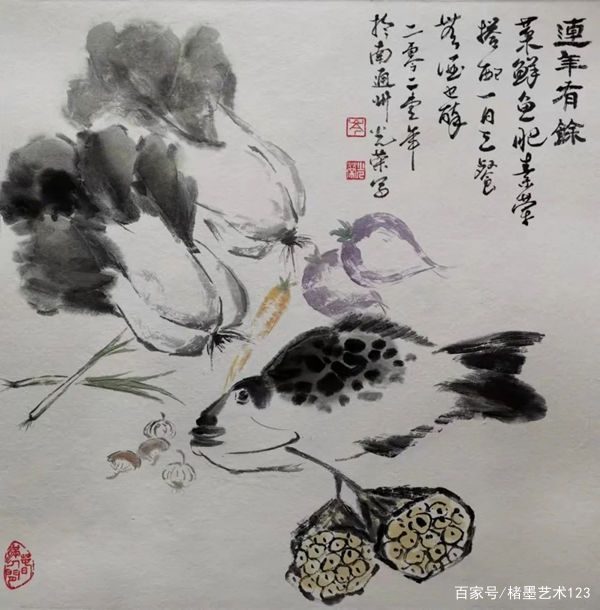 連年有餘
菜鮮魚肥素荤
搭配一日三餐
無酒也醉
二零二壹年
於南通州光荣写
百家号/楮墨艺术123